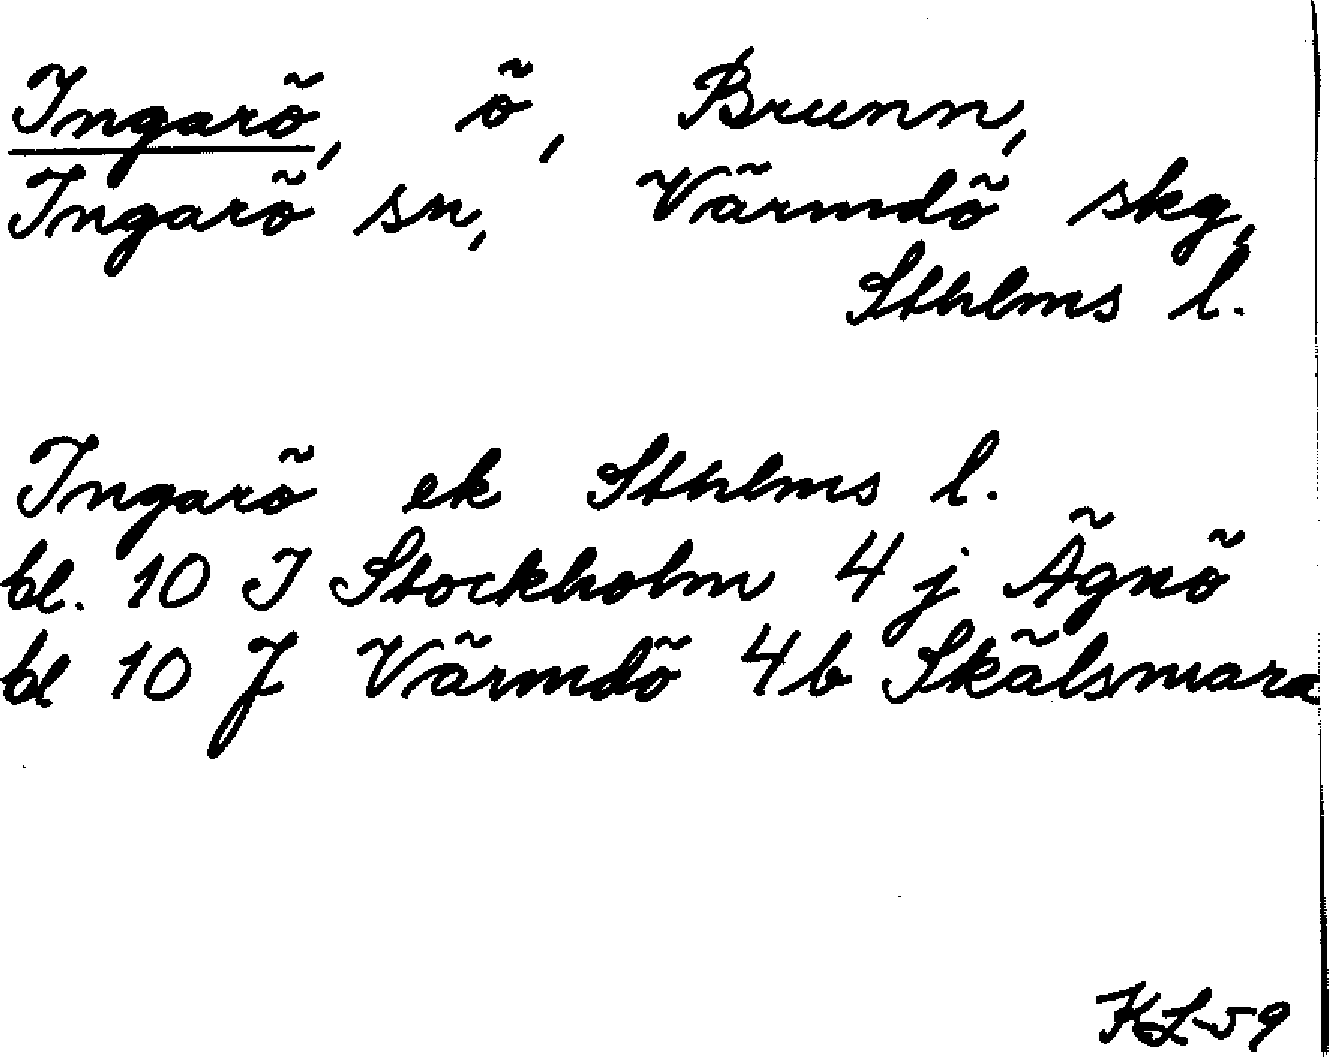 Ingarö, ö, Brunn,
Ingarö sn, Värmdö skg,
Sthlms l.
Ingarö ek Sthlms l.
bl. 10 I Stockholm 4 j Ägnö
bl 10 J Värmdö 4b Skälsmara
KL-59